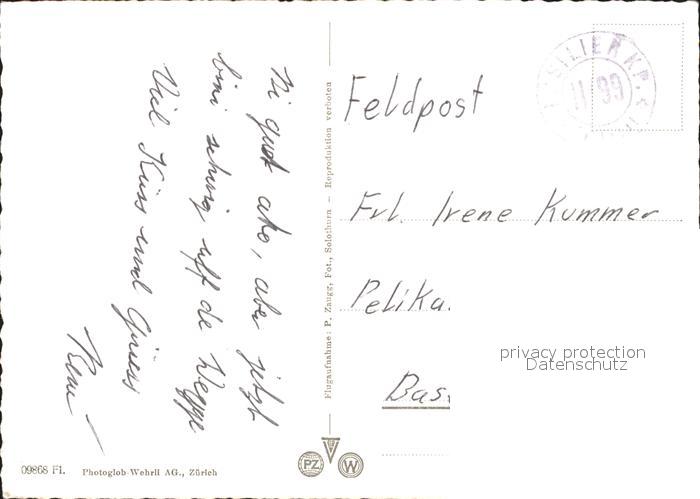 Bi guet aho, aber jetzt
bini schnig uff de Wegge
Viel Küss und Grüess
Rene
Feldpost
Frl. Irene Kummer
Pelika.
Bas.
privacy protection
Datenschutz
FÜSILIER KP.
II 99
Flugaufnahme: P. Zaugg, Fot., Solothurn – Reproduktion verboten
PZ
W
09868 Fl. Photoglob-Wehrli AG., Zürich